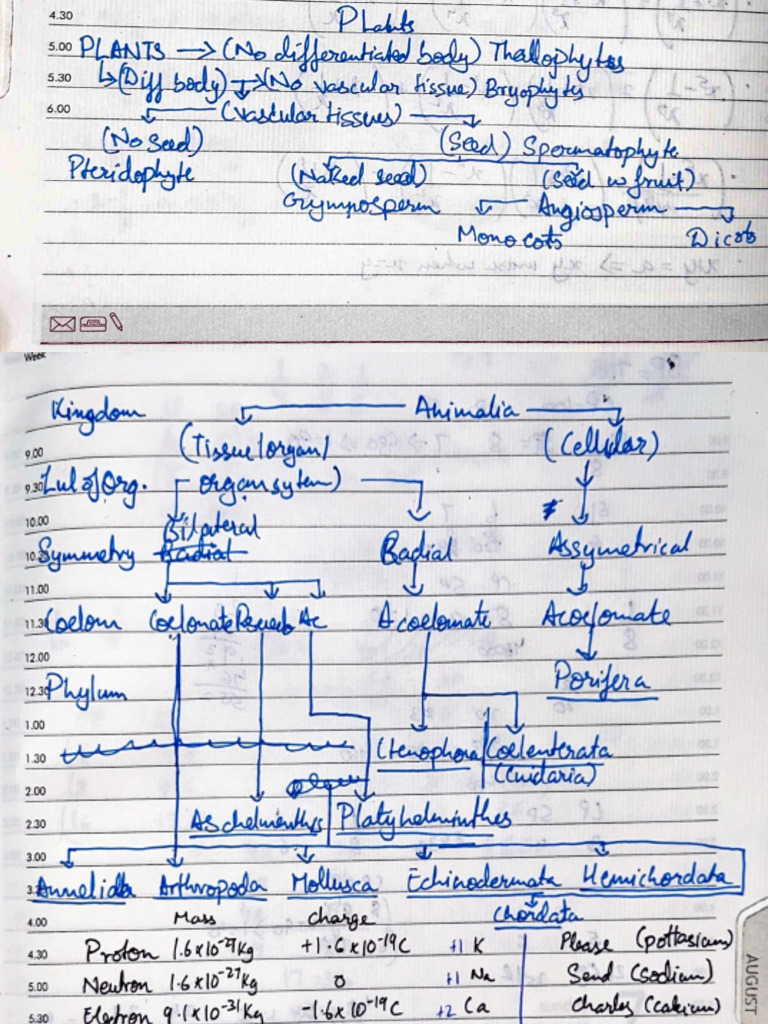 Plants
4.30
5.00 PLANTS → (No differentiated body) Thallophytes
5.30 ↳ (Diff body) → (No vascular tissue) Bryophytes
6.00 (Vascular tissues)
(No Seed) (Seed) Spermatophyte
Pteridophyte (Naked seed) (Seed w fruit)
Gymnosperm Angiosperm
Monocots Dicots
Week
Kingdom Animalia
9.00 (Tissue/organ/ (Cellular)
9.30 Lvl of Org. organ sytem)
10.00 Bilateral
10.30 Symmetry Radial Radial Assymetrical
11.00
11.30 Coelom Coelomate Pseudo Ac Acoelomate Acoelomate
12.00
12.30 Phylum Porifera
1.00
1.30 Ctenophora Coelenterata
(Cnidaria)
2.00
2.30 Aschelminthes Platyhelminthes
3.00
3.30 Annelida Arthropoda Mollusca Echinodermata Hemichordata
4.00 Mass charge Chordata
4.30 Proton 1.6x10-27Kg +1.6x10-19C +1 K Please (pottasium)
5.00 Neutron 1.6x10-27Kg 0 +1 Na Send (Sodium)
5.30 Electron 9.1x10-31Kg -1.6x10-19C +2 Ca Charles (calcium)
AUGUST